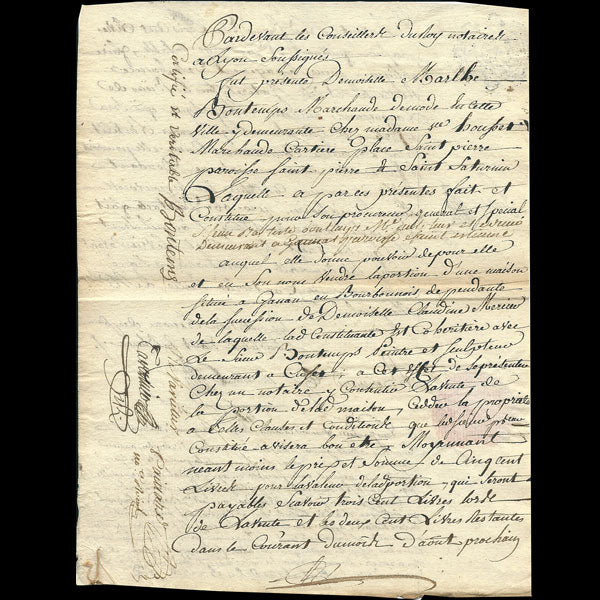 Pardevant les Conseillers du Roy notaires
a Lyon Soussignés
fut presente Demoiselle Marthe
Bontemps Marchande de mode de cette
Ville y demeurante chez madame ve housset
Marchande Cartiere place Saint pierre
paroisse Saint pierre & Saint Saturnin
Laquelle a par ces presentes fait et
Constitué pour son procureur general et special
Demeurant a Gannat paroisse Saint Etienne
auquel elle donne pouvoir de pour elle
et en son nom Vendre la portion d'une maison
situé a Ganat en Bourbonnois dependante
de la succession de Demoiselle Claudine Mercier
de laquelle lad Constituante est Coheritiere avec
Le Sieur Bontemps peintre et sculpteur
demeurant a Cusset a cet effet de se présenter
Chez un notaire y Consentir La vente de
la portion de lad maison, ceder la propriété
a telles Clauses et Conditions que led sieur pr
Constitué avisera bon etre Moyennant
neant moins le prix et Somme de Cinq cent
Livres pour la valeur de lad portion, qui seront
payables Scavoir trois cent Livres lors
de La vente et les deux cent Livres restantes
dans le Courant du mois d'aout prochain
Certifié et veritable Bontems